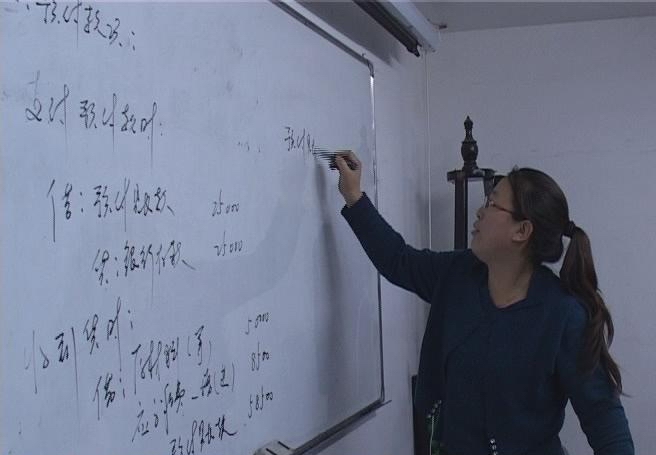 预付款项:
支付预付款时:
借:预付账款 25000
贷:银行存款 25000
预付账
收到货时:
借:原材料 50000
应交税费 8500
预付账款 58500